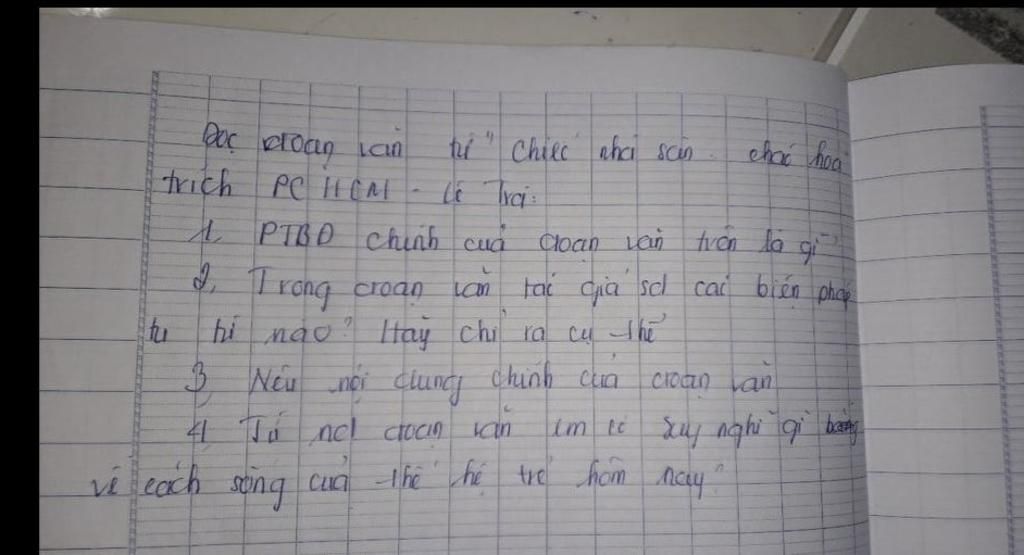 Đọc đoạn văn từ "chiếc nhà sàn .. chác hoa
trích PC HCM - Lê Trà:
1, PTBĐ chính của đoạn văn trên là gì?
2, Trong đoạn văn tác giả sd các biện pháp
tu từ nào? Hãy chỉ ra cụ thể
3, Nêu nội dung chính của đoạn văn
4, Từ nd đoạn văn em có suy nghĩ gì
về cách sống của thế hệ trẻ hôm nay?